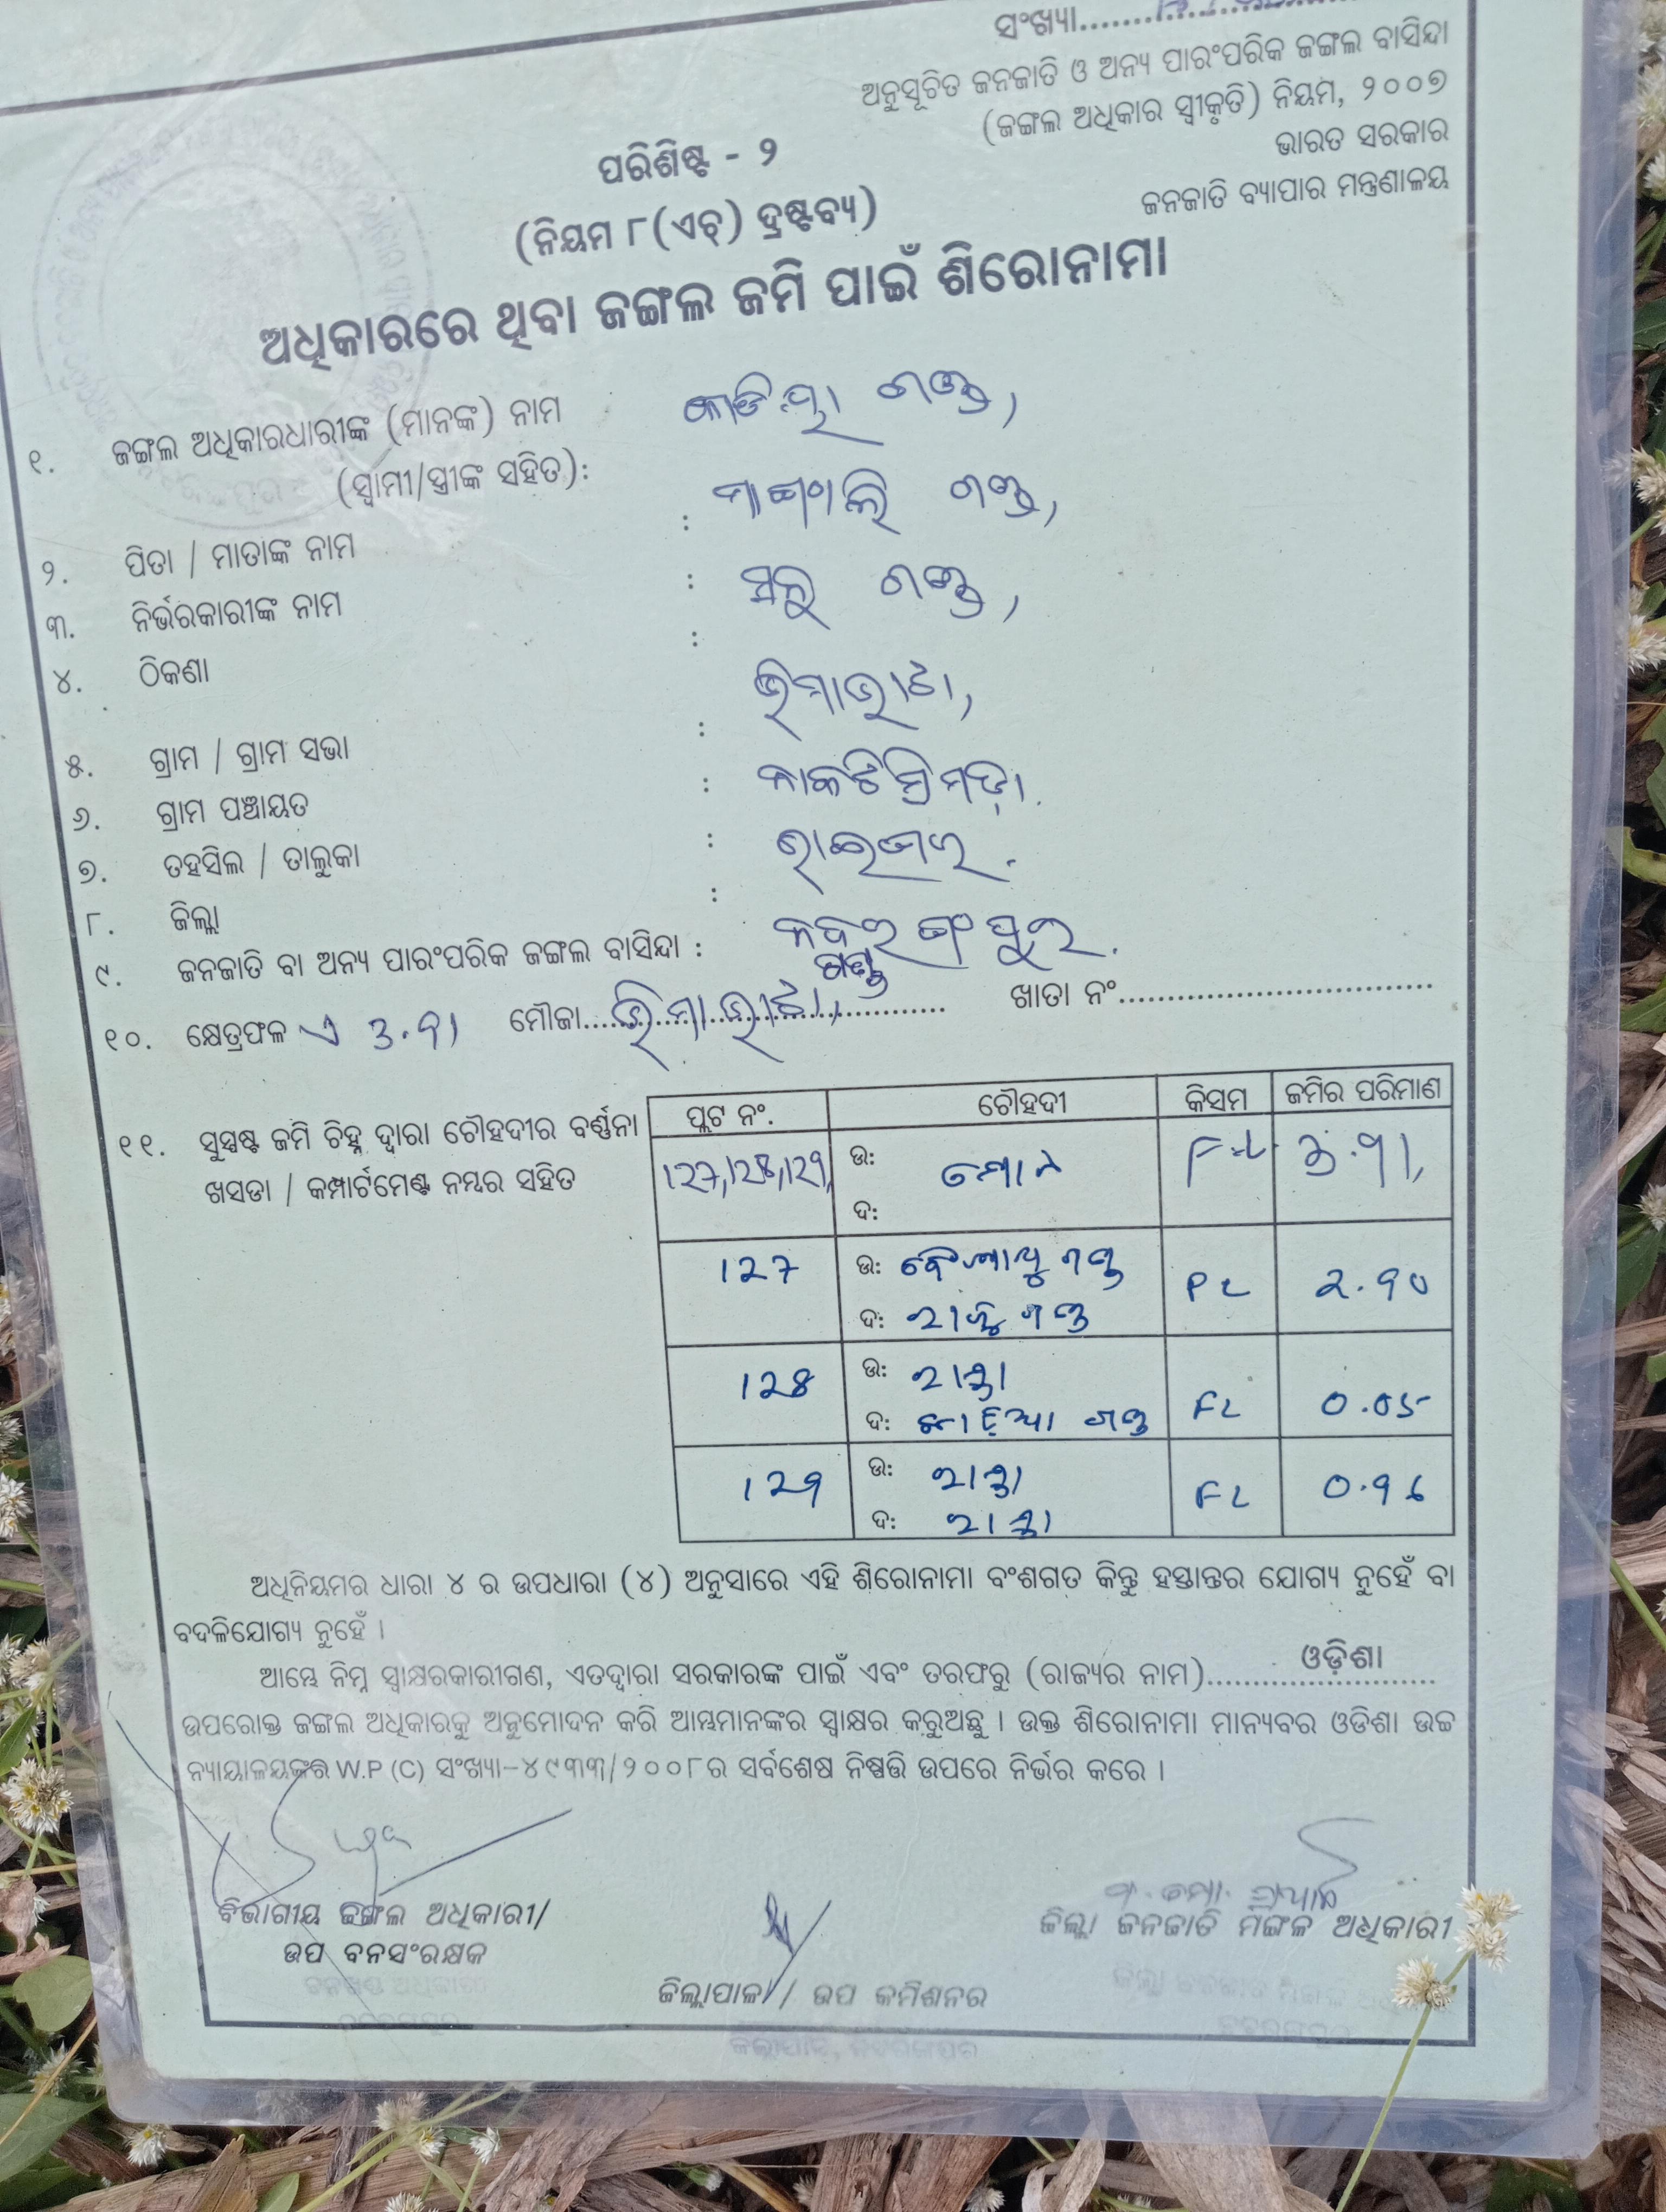 ସଂଖ୍ୟା
ଅନୁସୂଚିତ ଜନଜାତି ଓ ଅନ୍ୟ ପାରଂପରିକ ଜଙ୍ଗଲ ବାସିନ୍ଦା
(ଜଙ୍ଗଲ ଅଧିକାର ସ୍ୱୀକୃତି) ନିୟମ, ୨୦୦୭
ଭାରତ ସରକାର
ଜନଜାତି ବ୍ୟାପାର ମନ୍ତ୍ରଣାଳୟ
ପରିଶିଷ୍ଟ - ୨
(ନିୟମ ୮(ଏଚ୍) ଦ୍ରଷ୍ଟବ୍ୟ)
ଅଧିକାରରେ ଥିବା ଜଙ୍ଗଲ ଜମି ପାଇଁ ଶିରୋନାମା
୧. ଜଙ୍ଗଲ ଅଧିକାରଧାରୀଙ୍କ (ମାନଙ୍କ) ନାମ ଗଣ୍ଡ,
(ସ୍ୱାମୀ/ସ୍ତ୍ରୀଙ୍କ ସହିତ): ଗଣ୍ଡ,
୨. ପିତା / ମାତାଙ୍କ ନାମ : ଗଣ୍ଡ,
୩. ନିର୍ଭରକାରୀଙ୍କ ନାମ :
୪. ଠିକଣା : ଭିମାଭାଟା,
୫. ଗ୍ରାମ / ଗ୍ରାମ ସଭା :
୬. ଗ୍ରାମ ପଞ୍ଚାୟତ :
୭. ତହସିଲ / ତାଲୁକା : ରାଇଘର.
୮. ଜିଲ୍ଲା : ନବରଙ୍ଗପୁର.
୯. ଜନଜାତି ବା ଅନ୍ୟ ପାରଂପରିକ ଜଙ୍ଗଲ ବାସିନ୍ଦା : ଗଣ୍ଡ
୧୦. କ୍ଷେତ୍ରଫଳ ଏ ୩.୭୧ ମୌଜା ଭିମାଭାଟା, ଖାତା ନଂ
୧୧. ସୁସ୍ପଷ୍ଟ ଜମି ଚିହ୍ନ ଦ୍ୱାରା ଚୌହଦୀର ବର୍ଣ୍ଣନା
ଖସଡା / କମ୍ପାର୍ଟମେଣ୍ଟ ନମ୍ବର ସହିତ
ପ୍ଲଟ ନଂ. ଚୌହଦୀ କିସମ ଜମିର ପରିମାଣ
127,128,129, ଉ: FL
ଦ:
127 ଉ: ଗଣ୍ଡ PL
ଦ: ଗଣ୍ଡ
128 ଉ: ରାସ୍ତା FL 0.05
ଦ: ଗଣ୍ଡ
129 ଉ: ରାସ୍ତା FL
ଦ: ରାସ୍ତା
ଅଧିନିୟମର ଧାରା ୪ ର ଉପଧାରା (୪) ଅନୁସାରେ ଏହି ଶିରୋନାମା ବଂଶଗତ କିନ୍ତୁ ହସ୍ତାନ୍ତର ଯୋଗ୍ୟ ନୁହେଁ ବା
ବଦଳିଯୋଗ୍ୟ ନୁହେଁ ।
ଆମ୍ଭେ ନିମ୍ନ ସ୍ୱାକ୍ଷରକାରୀଗଣ, ଏତଦ୍ୱାରା ସରକାରଙ୍କ ପାଇଁ ଏବଂ ତରଫରୁ (ରାଜ୍ୟର ନାମ) ଓଡ଼ିଶା
ଉପରୋକ୍ତ ଜଙ୍ଗଲ ଅଧିକାରକୁ ଅନୁମୋଦନ କରି ଆମ୍ଭମାନଙ୍କର ସ୍ୱାକ୍ଷର କରୁଅଛୁ । ଉକ୍ତ ଶିରୋନାମା ମାନ୍ୟବର ଓଡିଶା ଉଚ୍ଚ
ନ୍ୟାୟାଳୟଙ୍କର W.P (C) ସଂଖ୍ୟା-୪୯୩୩/୨୦୦୮ର ସର୍ବଶେଷ ନିଷ୍ପତ୍ତି ଉପରେ ନିର୍ଭର କରେ ।
ବିଭାଗୀୟ ଜଙ୍ଗଲ ଅଧିକାରୀ/
ଉପ ବନସଂରକ୍ଷକ
ଜିଲ୍ଲା ଜନଜାତି ମଙ୍ଗଳ ଅଧିକାରୀ
ଜିଲ୍ଲାପାଳ / ଉପ କମିଶନର